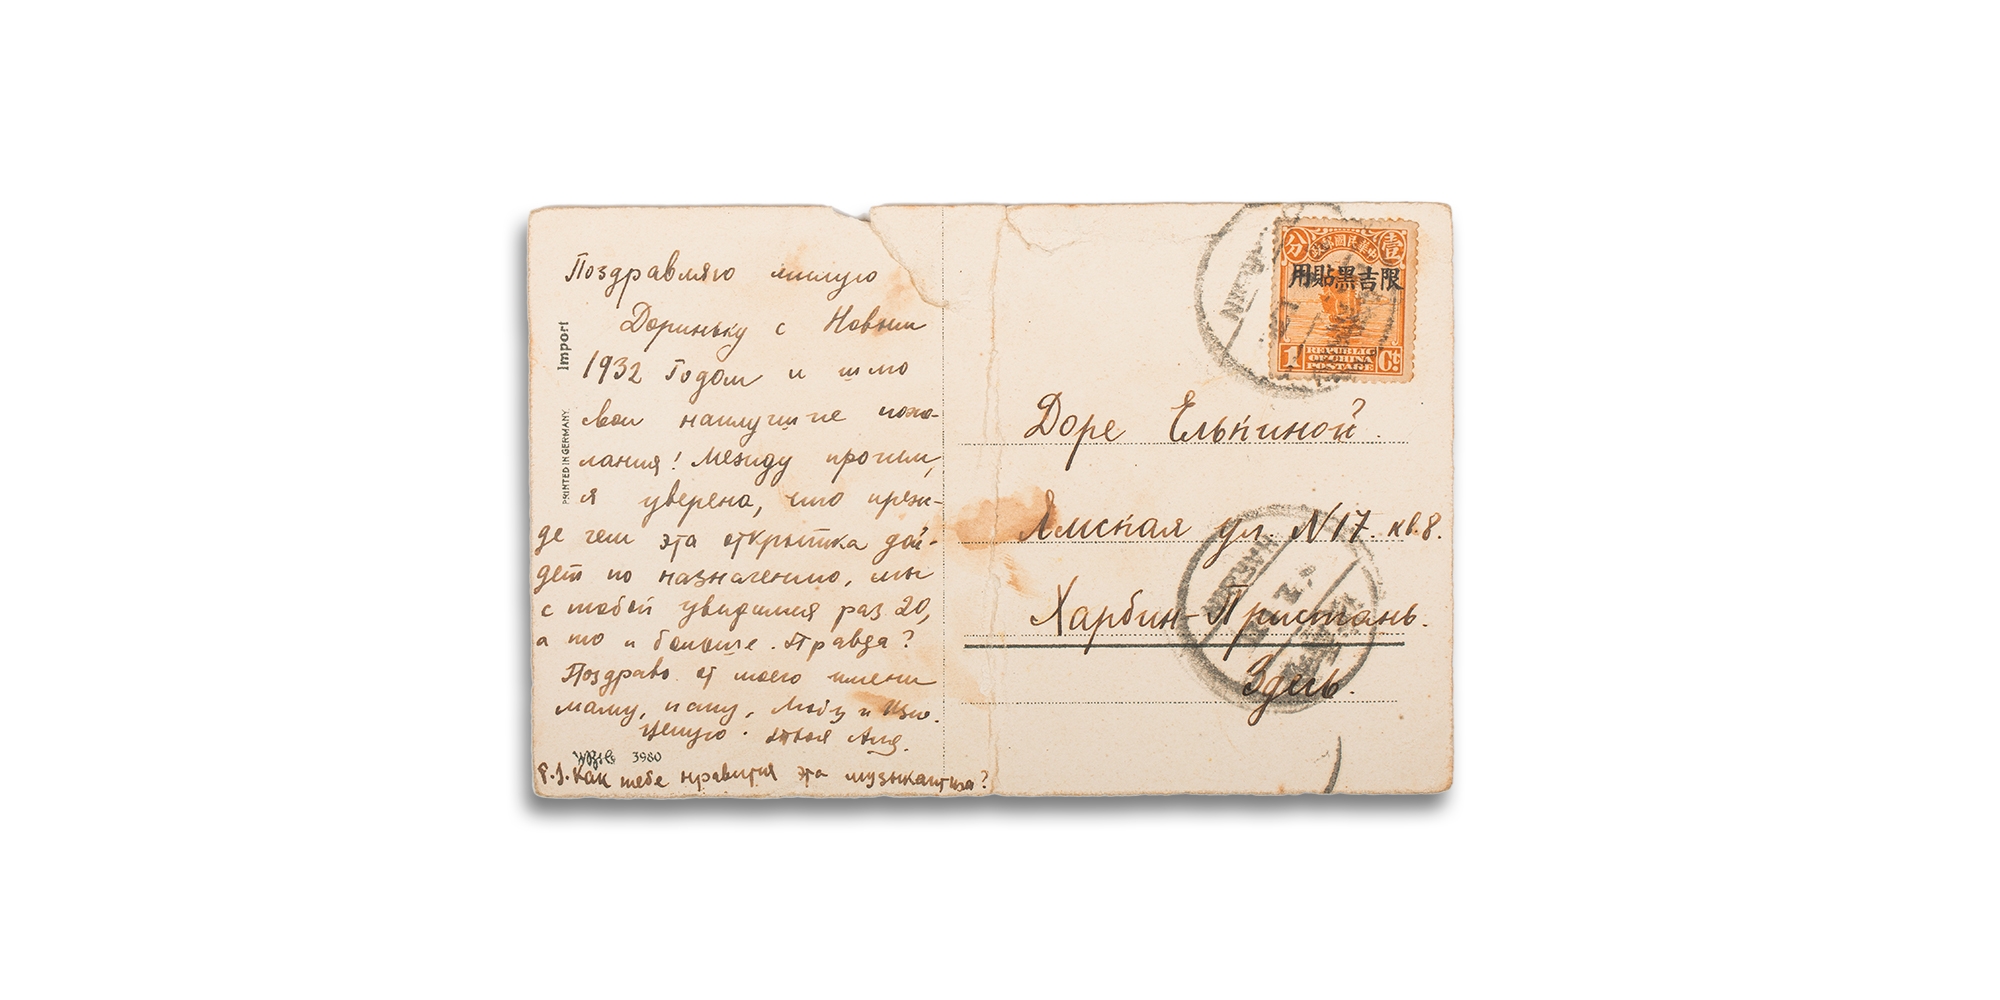 Поздравляю милую
Дориньку с Новым
1932 Годом и шлю
свои наилучшие поже-
лания! Между прочим,
я уверена, что преж-
де чем эта открытка дой-
дет по назначению, мы
с тобой увидимся раз 20,
а то и больше. Правда?
Поздравь от моего имени
маму, папу, Любу и Изю.
Целую. Твоя Аля.
P.S. Как тебе нравится эта музыкантша?
Import
PRINTED IN GERMANY
3980
中華民國郵政
壹
分
限吉黑貼用
1 Ct
REPUBLIC
OF CHINA
POSTAGE
Доре Елькиной.
Ямская ул. N17. кв.8.
Харбин-Пристань.
Здесь.
HARBIN